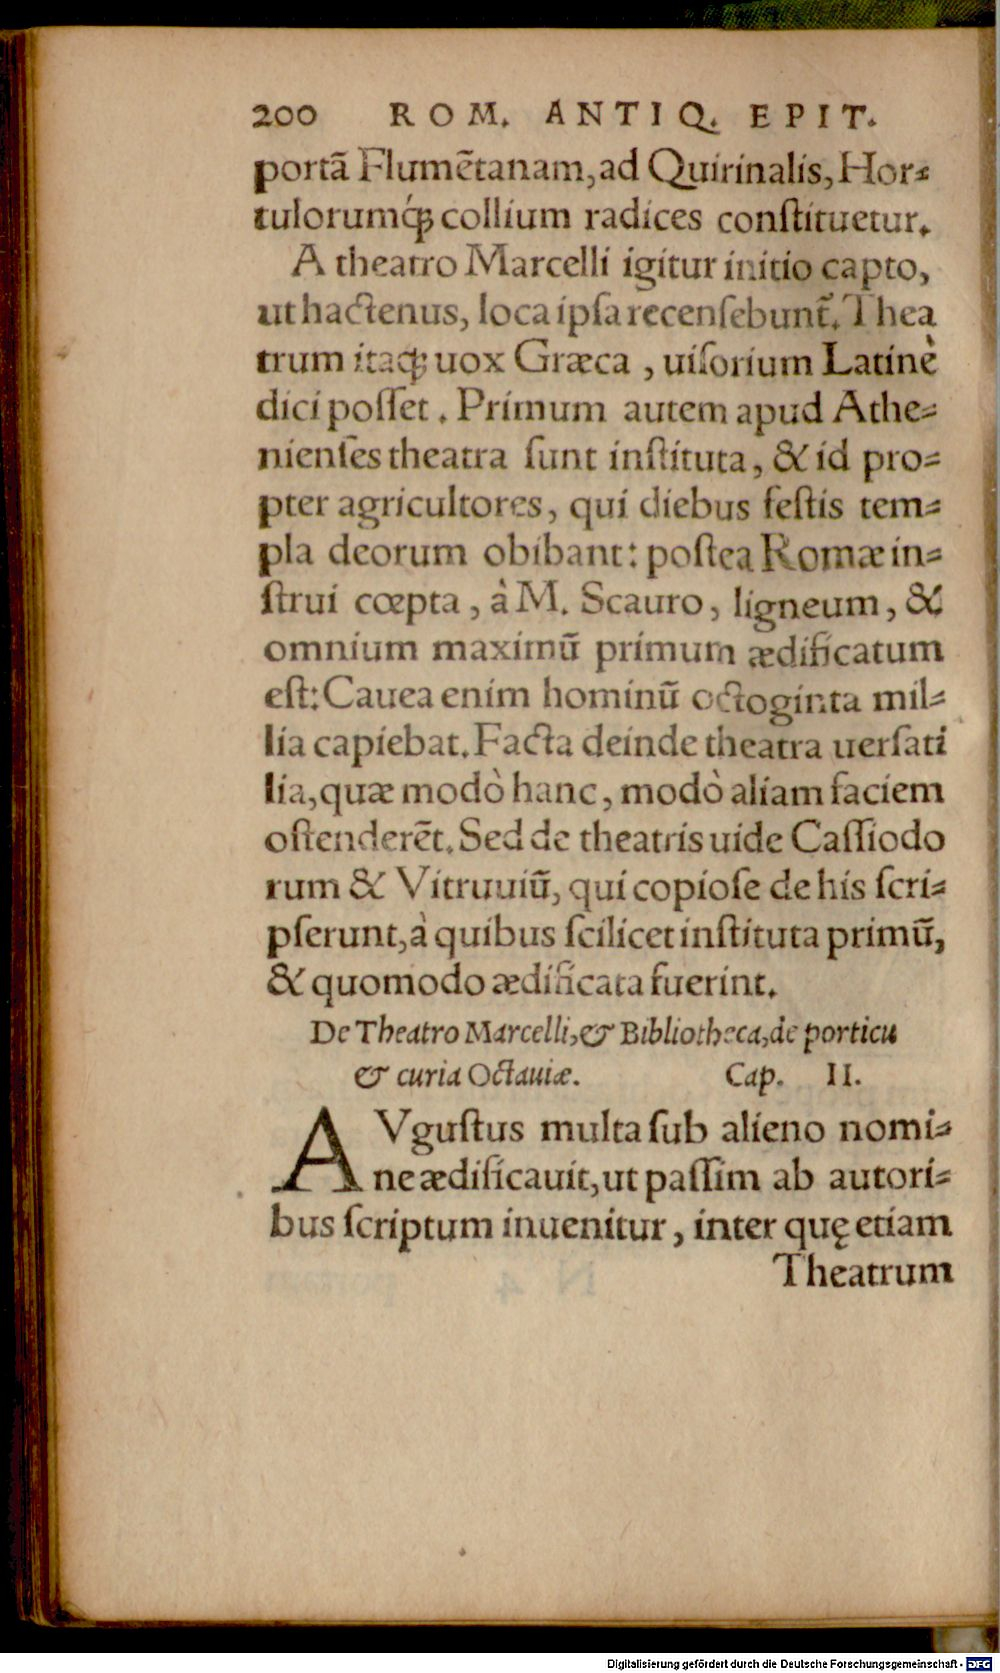 200 ROM. ANTIQ. EPIT.
portã Flumẽtanam, ad Quirinalis, Hor⸗
tulorumq́ꝫ collium radices conſtituetur.
A theatro Marcelli igitur initio capto,
ut hactenus, loca ipſa recenſebunt̃. Thea
trum itaqꝫ uox Græca, uiſorium Latinè
dici poſſet. Primum autem apud Athe⸗
nienſes theatra ſunt inſtituta, & id pro⸗
pter agricultores, qui diebus feſtis tem⸗
pla deorum obibant: poſtea Romæ in⸗
ſtrui cœpta, à M. Scauro, ligneum, &
omnium maximũ primum ædificatum
eſt: Cauea enim hominũ octoginta mil⸗
lia capiebat. Facta deinde theatra uerſati
lia, quæ modò hanc, modò aliam faciem
oſtenderẽt. Sed de theatris uide Caſſiodo
rum & Vitruuiũ, qui copioſe de his ſcri⸗
pſerunt, à quibus ſcilicet inſtituta primũ,
& quomodo ædificata fuerint.
De Theatro Marcelli, & Bibliotheca, de porticu
& curia Octauiæ. Cap. II.
AVguſtus multa ſub alieno nomi⸗
ne ædificauit, ut paſſim ab autori⸗
bus ſcriptum inuenitur, inter quę etiam
Theatrum
Digitalisierung gefördert durch die Deutsche Forschungsgemeinschaft - DFG